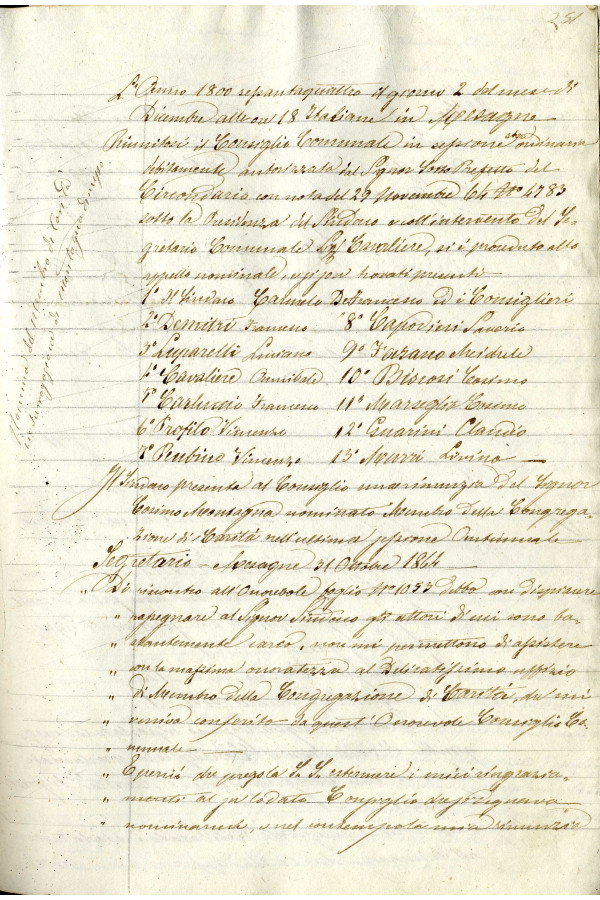 251
L'Anno 1800 sessantaquattro il giorno 2 del mese di
Dicembre alle ore 18 Italiane in Mesagne
Riunitosi il Consiglio Comunale in sessione stra ordinaria
debitamente autorizzata dal Signor Sotto Prefetto del
Circondario con nota del 29 Novembre 64 No 4783
sotto la Presidenza del Sindaco e coll'intervento del Se-
gretario Comunale Sigr Cavaliere, si è proceduto allo
appello nominale, e si son trovati presenti
1o Il Sindaco Carmelo DeFrancesco ed i Consiglieri
2o Demitri Francesco 8o Capodieci Saverio
3o Luparelli Luciano 9o Fazano
4o Cavaliere Annibale 10o Cosimo
5o Carluccio Francesco 11o Marseglia Cosimo
6o Profilo Vincenzo 12o Guarini Claudio
7o Rubino Vincenzo 13o Murri Livino
Il Sindaco presenta al Consiglio una rinunzia del Signor
Cosimo Montagna nominato Membro della Congrega-
zione di Carità nell'ultima sessione Autunnale
Segretario - Mesagne 31 Ottobre 1864
" Di riscontro all'Onorevole foglio No 1053 debbo con dispiacere
" rassegnare al Signor Sindaco gli affari di cui sono ba-
" stantemente carco, non mi permettono di assistere
" con la massima onoratezza al Delicatissimo uffizio
" di Membro della Congregazione di Carità, che mi
" veniva conferito da quest'Onorevole Consiglio Co-
" munale
" E perciò che prego la S. S. esternare i miei ringrazia-
" menti al pre lodato Consiglio che si degnava
" nominarmi, e nel contempo la mia rinunzia
Nomina del membro di Carità
in rimpiazzo di Montagna Cosimo